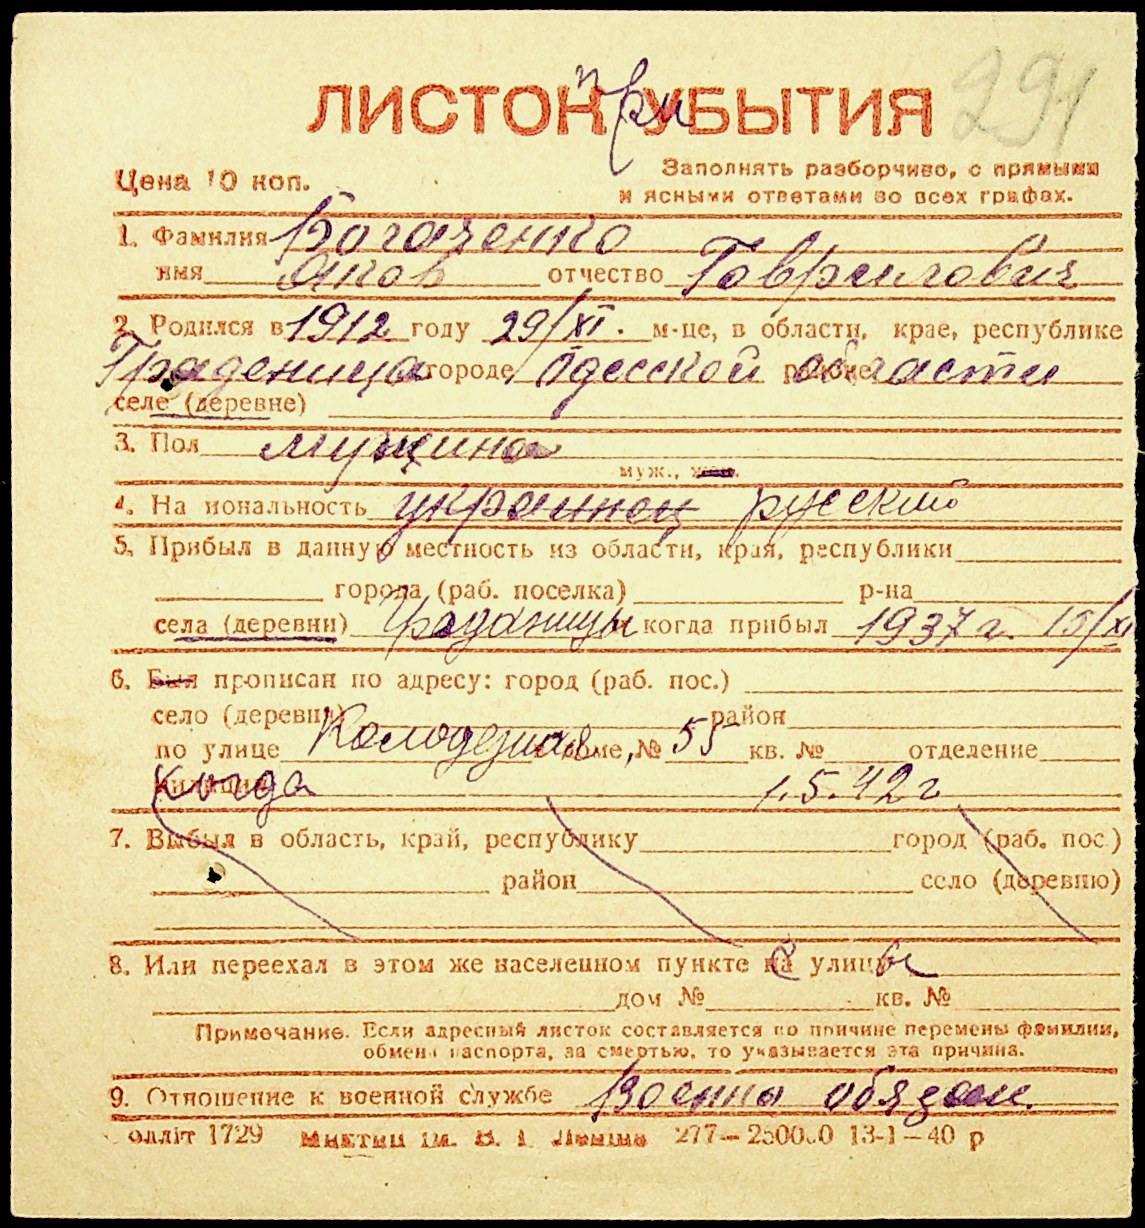 291
ЛИСТОК при УБЫТИЯ
Цена 10 коп.
Заполнять разборчиво, с прямыми
и ясными ответами во всех графах.
1. Фамилия Богаченко
имя Яков отчество Гаврилович
2. Родился в 1912 году 29/XI. м-це, в области, крае, республике
Граденица городе Одесской районе области
селе (деревне)
3. Пол мущина
муж., жен.
4. Национальность украинец русский
5. Прибыл в данную местность из области, края, республики
города (раб. поселка) р-на
села (деревни) Граданицы когда прибыл 1937 г. 15/XI
6. Был прописан по адресу: город (раб. пос.)
село (деревня) район
по улице Колодезная доме, № 55 кв. № отделение
милиции когда 1.5.42 г
7. Выбыл в область, край, республику город (раб. пос.)
район село (деревню)
8. Или переехал в этом же населенном пункте с улицы
дом № кв. №
Примечание. Если адресный листок составляется по причине перемены фамилии,
обмена паспорта, за смертью, то указывается эта причина.
9. Отношение к военной службе Военно обязан.
Облліт 1729 ім. В. І. Леніна 277—250000 13-1—40 р